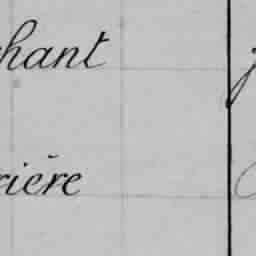 hant
rière